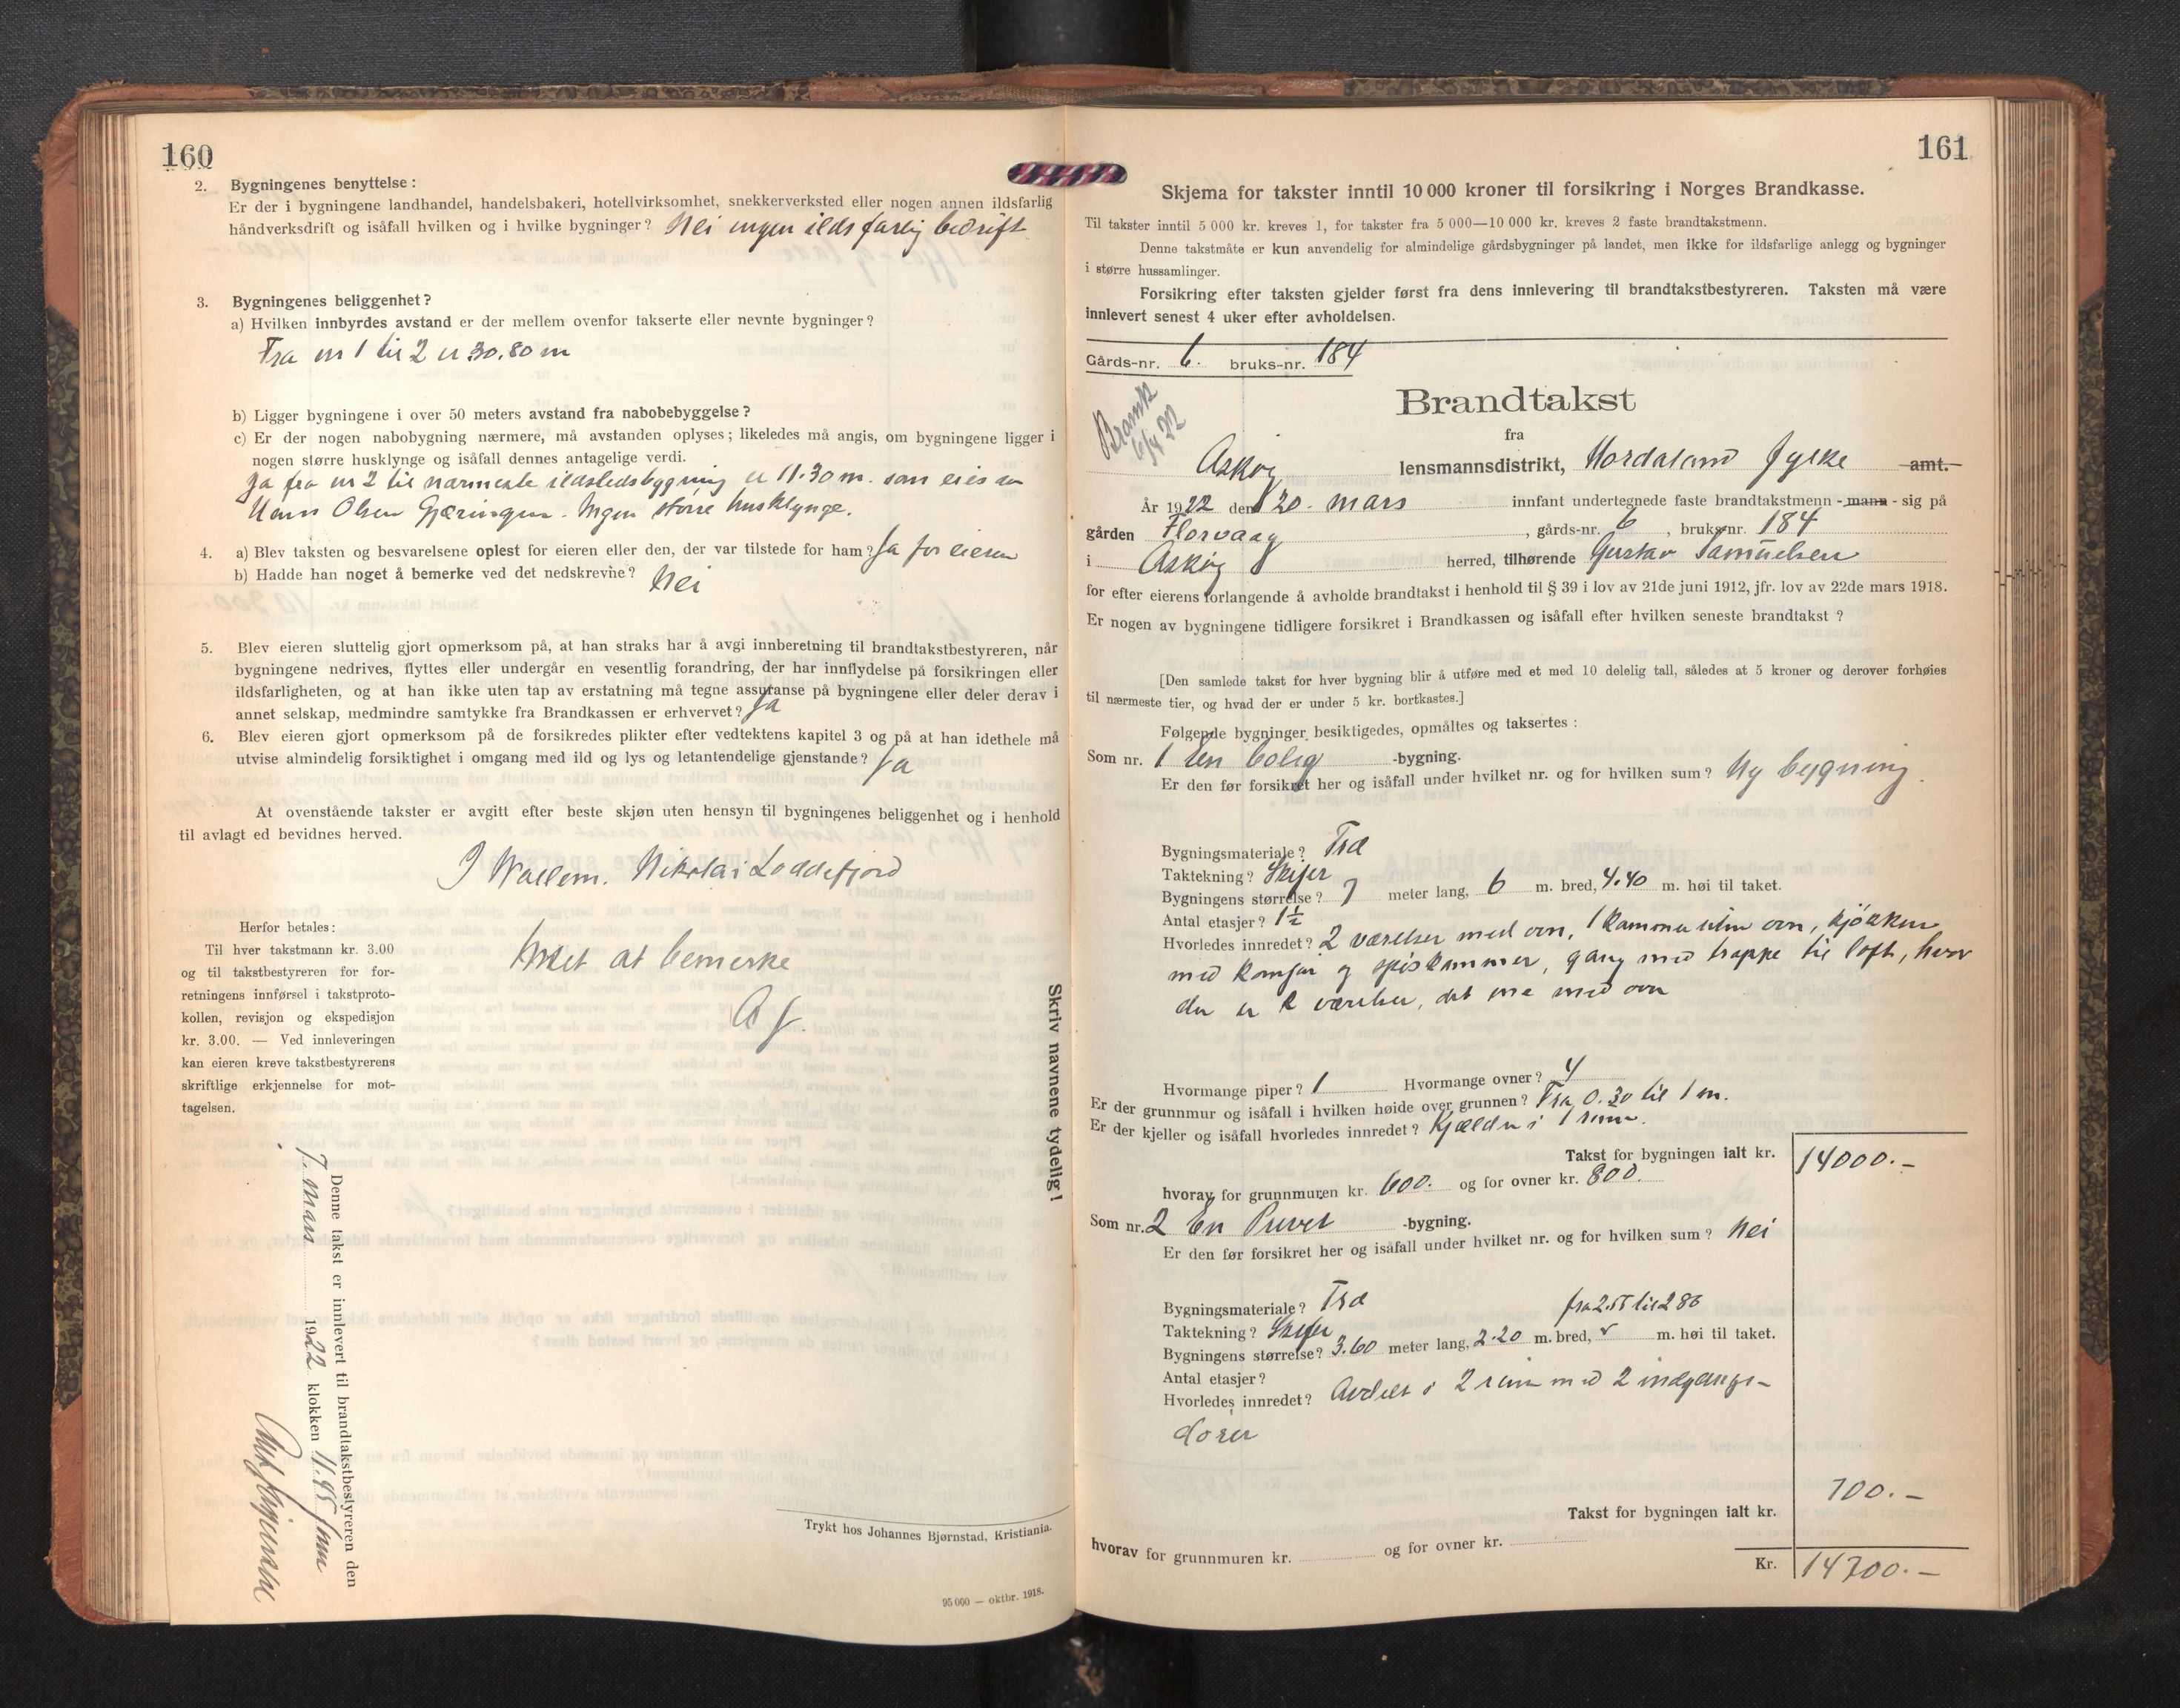 160
2. Bygningenes benyttelse :
Er der i bygningene landhandel, handelsbakeri, hotellvirksomhet, snekkerverksted eller nogen annen ildsfarlig
håndverksdrift og isåfall hvilken og i hvilke bygninger? Nei ingen ildsfarlig bedrift
3. Bygningenes beliggenhet?
a) Hvilken innbyrdes avstand er der mellem ovenfor takserte eller nevnte bygninger?
Fra nr 1 til 2 er 30.80 m
b) Ligger bygningene i over 50 meters avstand fra nabobebyggelse?
c) Er der nogen nabobygning nærmere, må avstanden oplyses; likeledes må angis, om bygningene ligger i
nogen større husklynge og isåfall dennes antagelige verdi.
Ja fra nr 2 til nærmeste ildstedsbygning er 11.30 m. som eies av
Hans Olsen Gjæringen. Ingen större husklynge.
4. a) Blev taksten og besvarelsene oplest for eieren eller den, der var tilstede for ham? Ja for eieren
b) Hadde han noget å bemerke ved det nedskrevne? Nei
5. Blev eieren sluttelig gjort opmerksom på, at han straks har å avgi innberetning til brandtakstbestyreren, når
bygningene nedrives, flyttes eller undergår en vesentlig forandring, der har innflydelse på forsikringen eller
ildsfarligheten, og at han ikke uten tap av erstatning må tegne assuranse på bygningene eller deler derav i
annet selskap, medmindre samtykke fra Brandkassen er erhvervet? Ja
6. Blev eieren gjort opmerksom på de forsikredes plikter efter vedtektens kapitel 3 og på at han idethele må
utvise almindelig forsiktighet i omgang med ild og lys og letantendelige gjenstande? Ja
At ovenstående takster er avgitt efter beste skjøn uten hensyn til bygningenes beliggenhet og i henhold
til avlagt ed bevidnes herved.
J Wallem. Nikolai Loddefjord
Intet at bemerke
Herfor betales:
Til hver takstmann kr. 3.00
og til takstbestyreren for for-
retningens innførsel i takstproto-
kollen, revisjon og ekspedisjon
kr. 3.00. — Ved innleveringen
kan eieren kreve takstbestyrerens
skriftlige erkjennelse for mot-
tagelsen.
Skriv navnene tydelig!
Denne takst er innlevert til brandtakstbestyreren den
7. mars 1922 klokken 11.45 fmm
Trykt hos Johannes Bjørnstad, Kristiania.
95 000 — oktbr. 1918.
161
Skjema for takster inntil 10 000 kroner til forsikring i Norges Brandkasse.
Til takster inntil 5 000 kr. kreves 1, for takster fra 5 000—10 000 kr. kreves 2 faste brandtakstmenn.
Denne takstmåte er kun anvendelig for almindelige gårdsbygninger på landet, men ikke for ildsfarlige anlegg og bygninger
i større hussamlinger.
Forsikring efter taksten gjelder først fra dens innlevering til brandtakstbestyreren. Taksten må være
innlevert senest 4 uker efter avholdelsen.
Gårds-nr. 6. bruks-nr. 184
6/4 22
Brandtakst
fra
Askøy lensmannsdistrikt, Hordaland fylke amt.
År 1922 den 20. mars innfant undertegnede faste brandtakstmenn - mann - sig på
gården Florvaag, gårds-nr. 6, bruks-nr. 184
i Askøy herred, tilhørende Gustav Samuelsen
for efter eierens forlangende å avholde brandtakst i henhold til § 39 i lov av 21de juni 1912, jfr. lov av 22de mars 1918.
Er nogen av bygningene tidligere forsikret i Brandkassen og isåfall efter hvilken seneste brandtakst ?
[Den samlede takst for hver bygning blir å utføre med et med 10 delelig tall, således at 5 kroner og derover forhøies
til nærmeste tier, og hvad der er under 5 kr. bortkastes.]
Følgende bygninger besiktigedes, opmåltes og taksertes :
Som nr. 1 En bolig -bygning.
Er den før forsikret her og isåfall under hvilket nr. og for hvilken sum? Ny bygning.
Bygningsmateriale? Træ
Taktekning? Skifer
Bygningens størrelse? 7 meter lang, 6 m. bred, 4.40 m. høi til taket.
Antal etasjer? 1½
Hvorledes innredet? 2 værelser med ovn, 1 kammer uten ovn, kjökken
med komfur og spiskammer, gang med trappe til loft, hvor
der er 2 værelser, det ene med ovn
Hvormange piper? 1 Hvormange ovner? 4
Er der grunnmur og isåfall i hvilken høide over grunnen? Fra 0.30 til 1 m.
Er der kjeller og isåfall hvorledes innredet? Kjælder i 1 rum.
Takst for bygningen ialt kr. 14000.-
hvorav for grunnmuren kr. 600. og for ovner kr. 800.
Som nr. 2 En Privet -bygning.
Er den før forsikret her og isåfall under hvilket nr. og for hvilken sum? Nei
Bygningsmateriale? Træ fra 2.55 til 2 86
Taktekning? Skifer
Bygningens størrelse? 3.60 meter lang, 2.20 m. bred, m. høi til taket.
Antal etasjer?
Hvorledes innredet? Avdelt i 2 rum med 2 indgangs-
dører
Takst for bygningen ialt kr. 700.-
hvorav for grunnmuren kr. og for ovner kr.
Kr. 14700.-